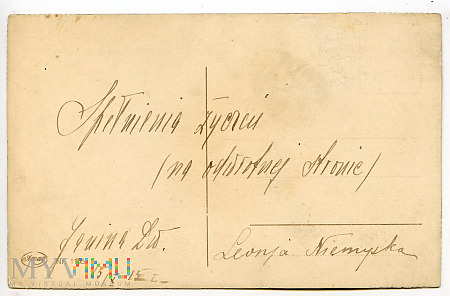 Spełnienia życzeń
(na odwrotnej stronie)
Janina
Leonja Niemyska
MYVIMU
MY VIRTUAL MUSEUM